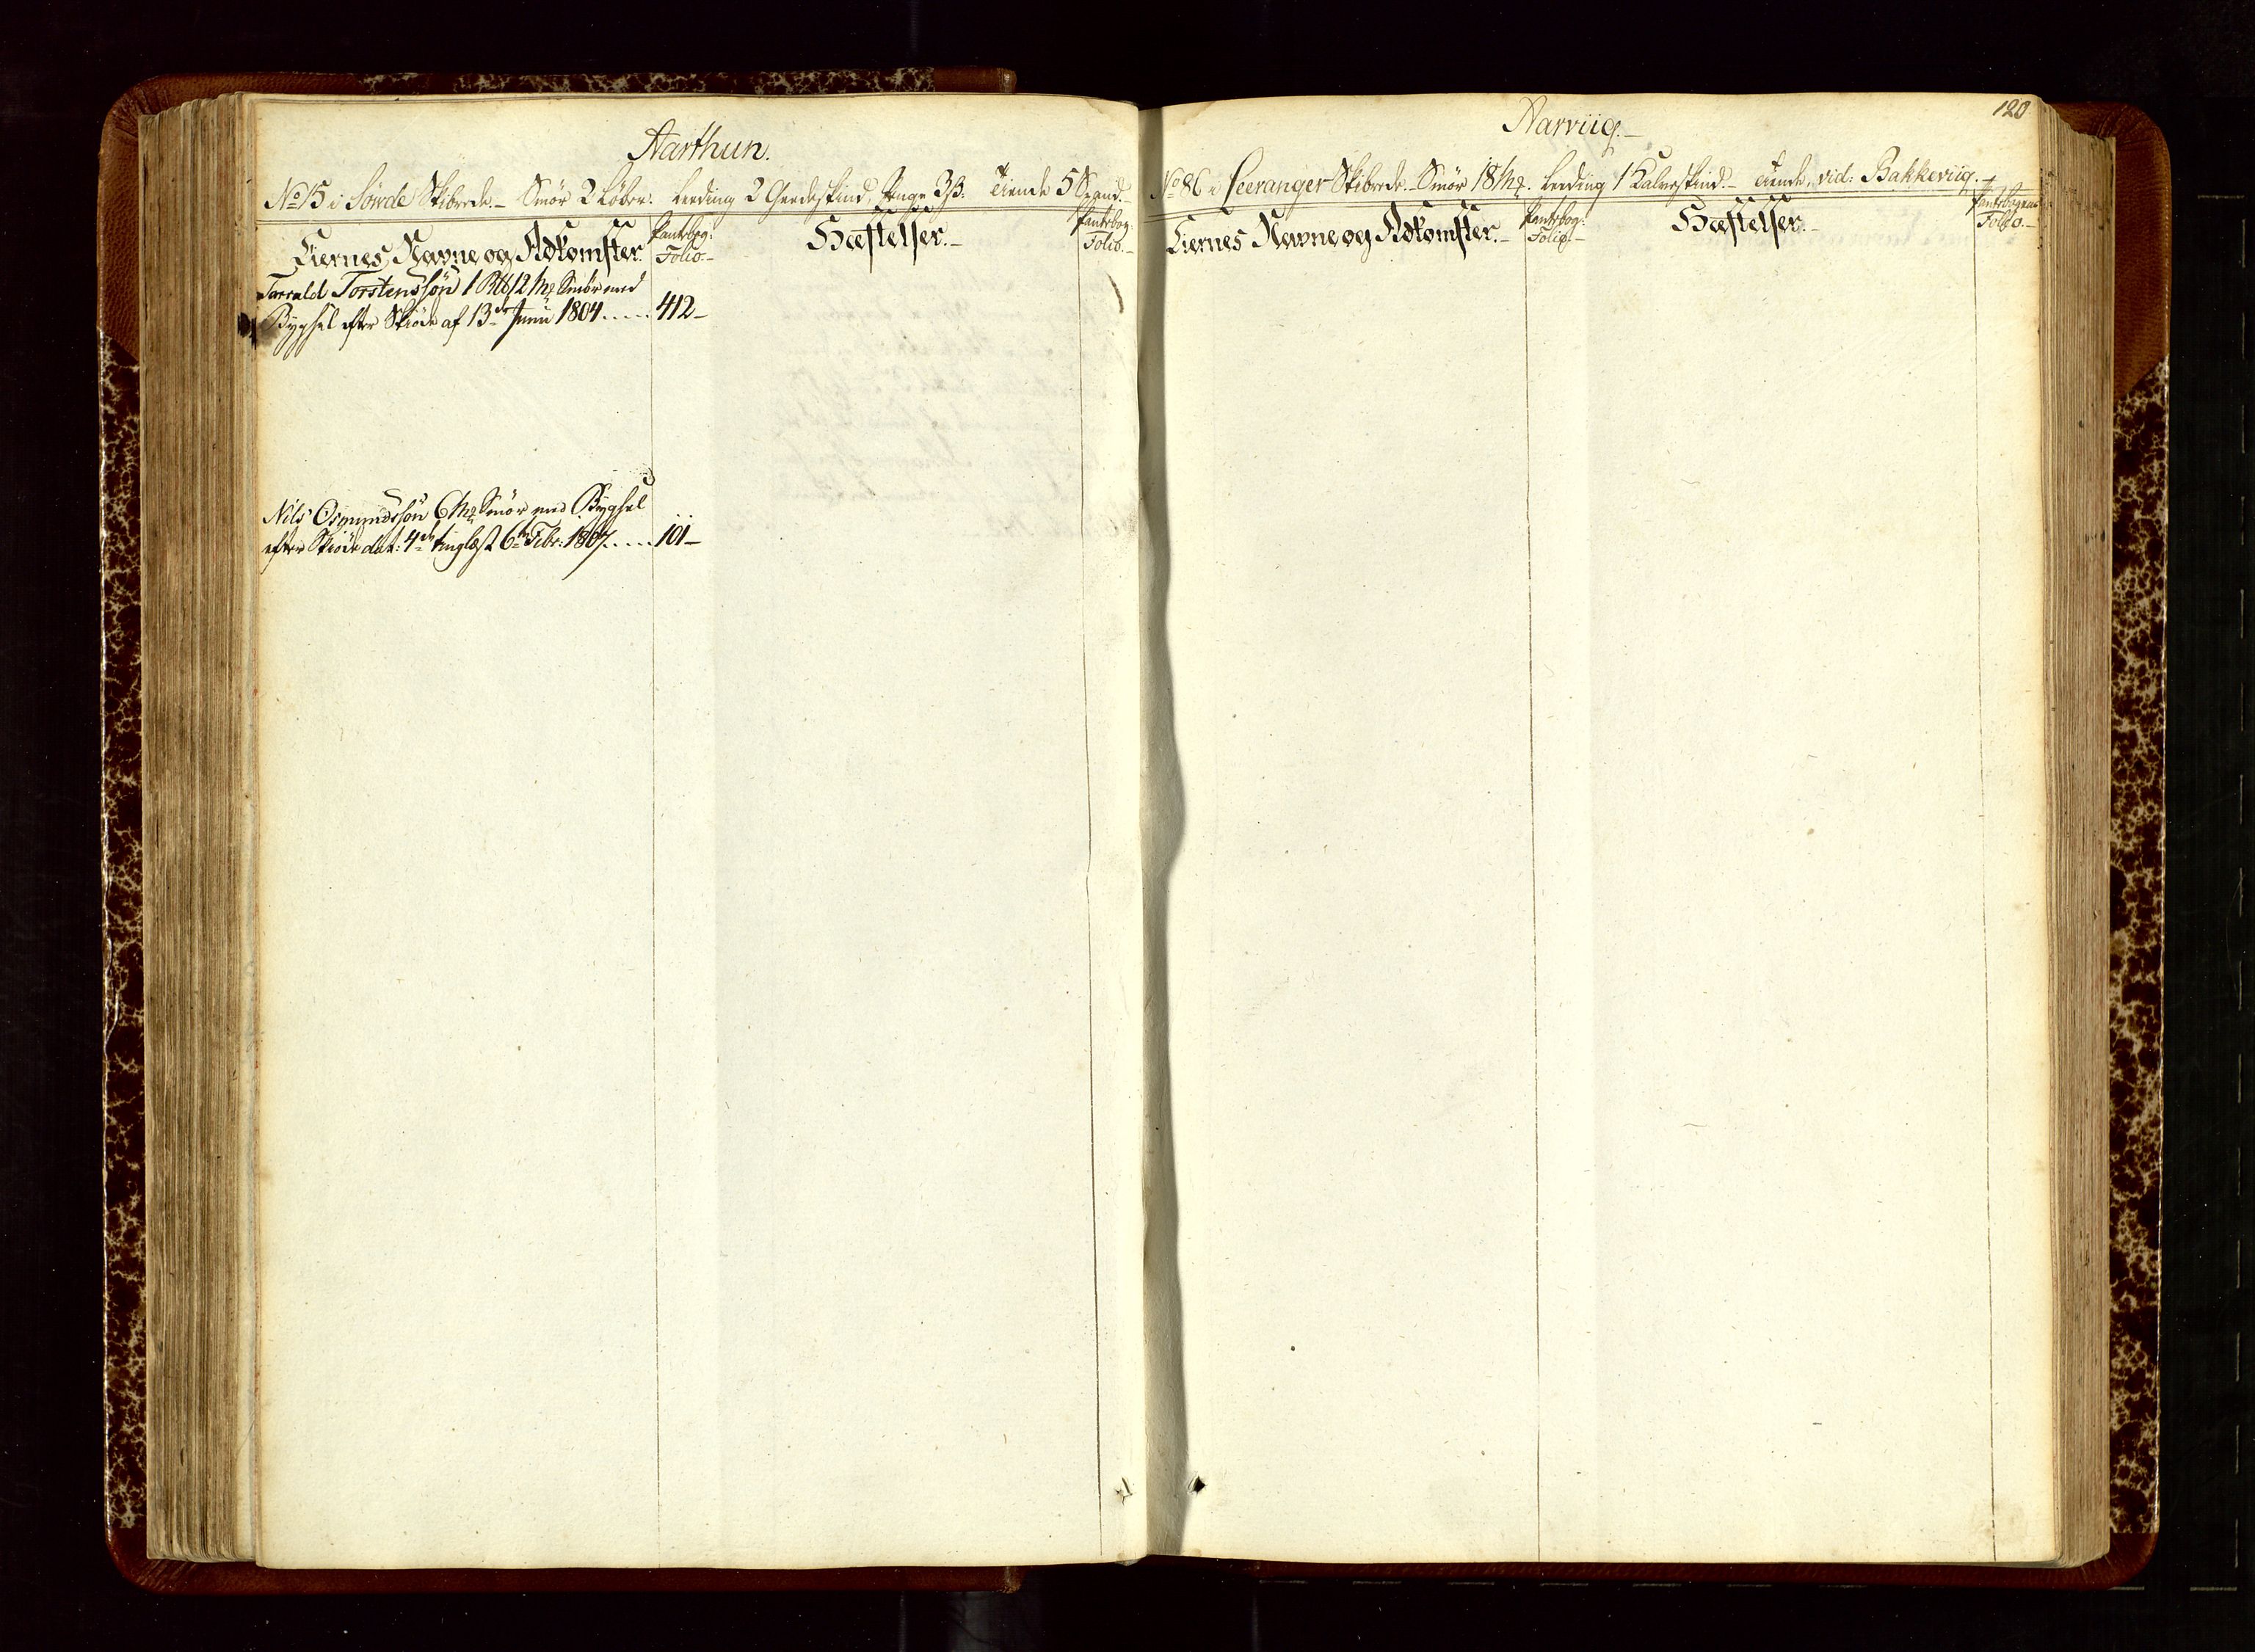 Aarthun.
No 15 i Sövde Skibrede. – Smör 2 Löber. Leeding 2 Geedeskind, Penge 3 ß: Tiende 5 Spand. –
Eiernes Navne og Adkomster.
Pantebog: Folio. –
Hæftelser. –
Pantebog: Folio. –
Torstensön 1 12 Mg Smör med
Bygsel efter Skiöde af 13de Junii 1804..... 412 –
Nils Osmundssön 6 Mg Smör med Bygsel
efter Skiöde dat: 4de tinglæst 6te Febr: 1807..... 101 –
120
Aarviig. –
No 86 i Leeranger Skibrede. – Smör 18 Mg. Leeding 1 Kalveskind. – Tiende, vid: Bakkeviig. –
Eiernes Navne og Adkomster. –
Pantebog: Folio. –
Hæftelser. –
Pantebogens Folio. –